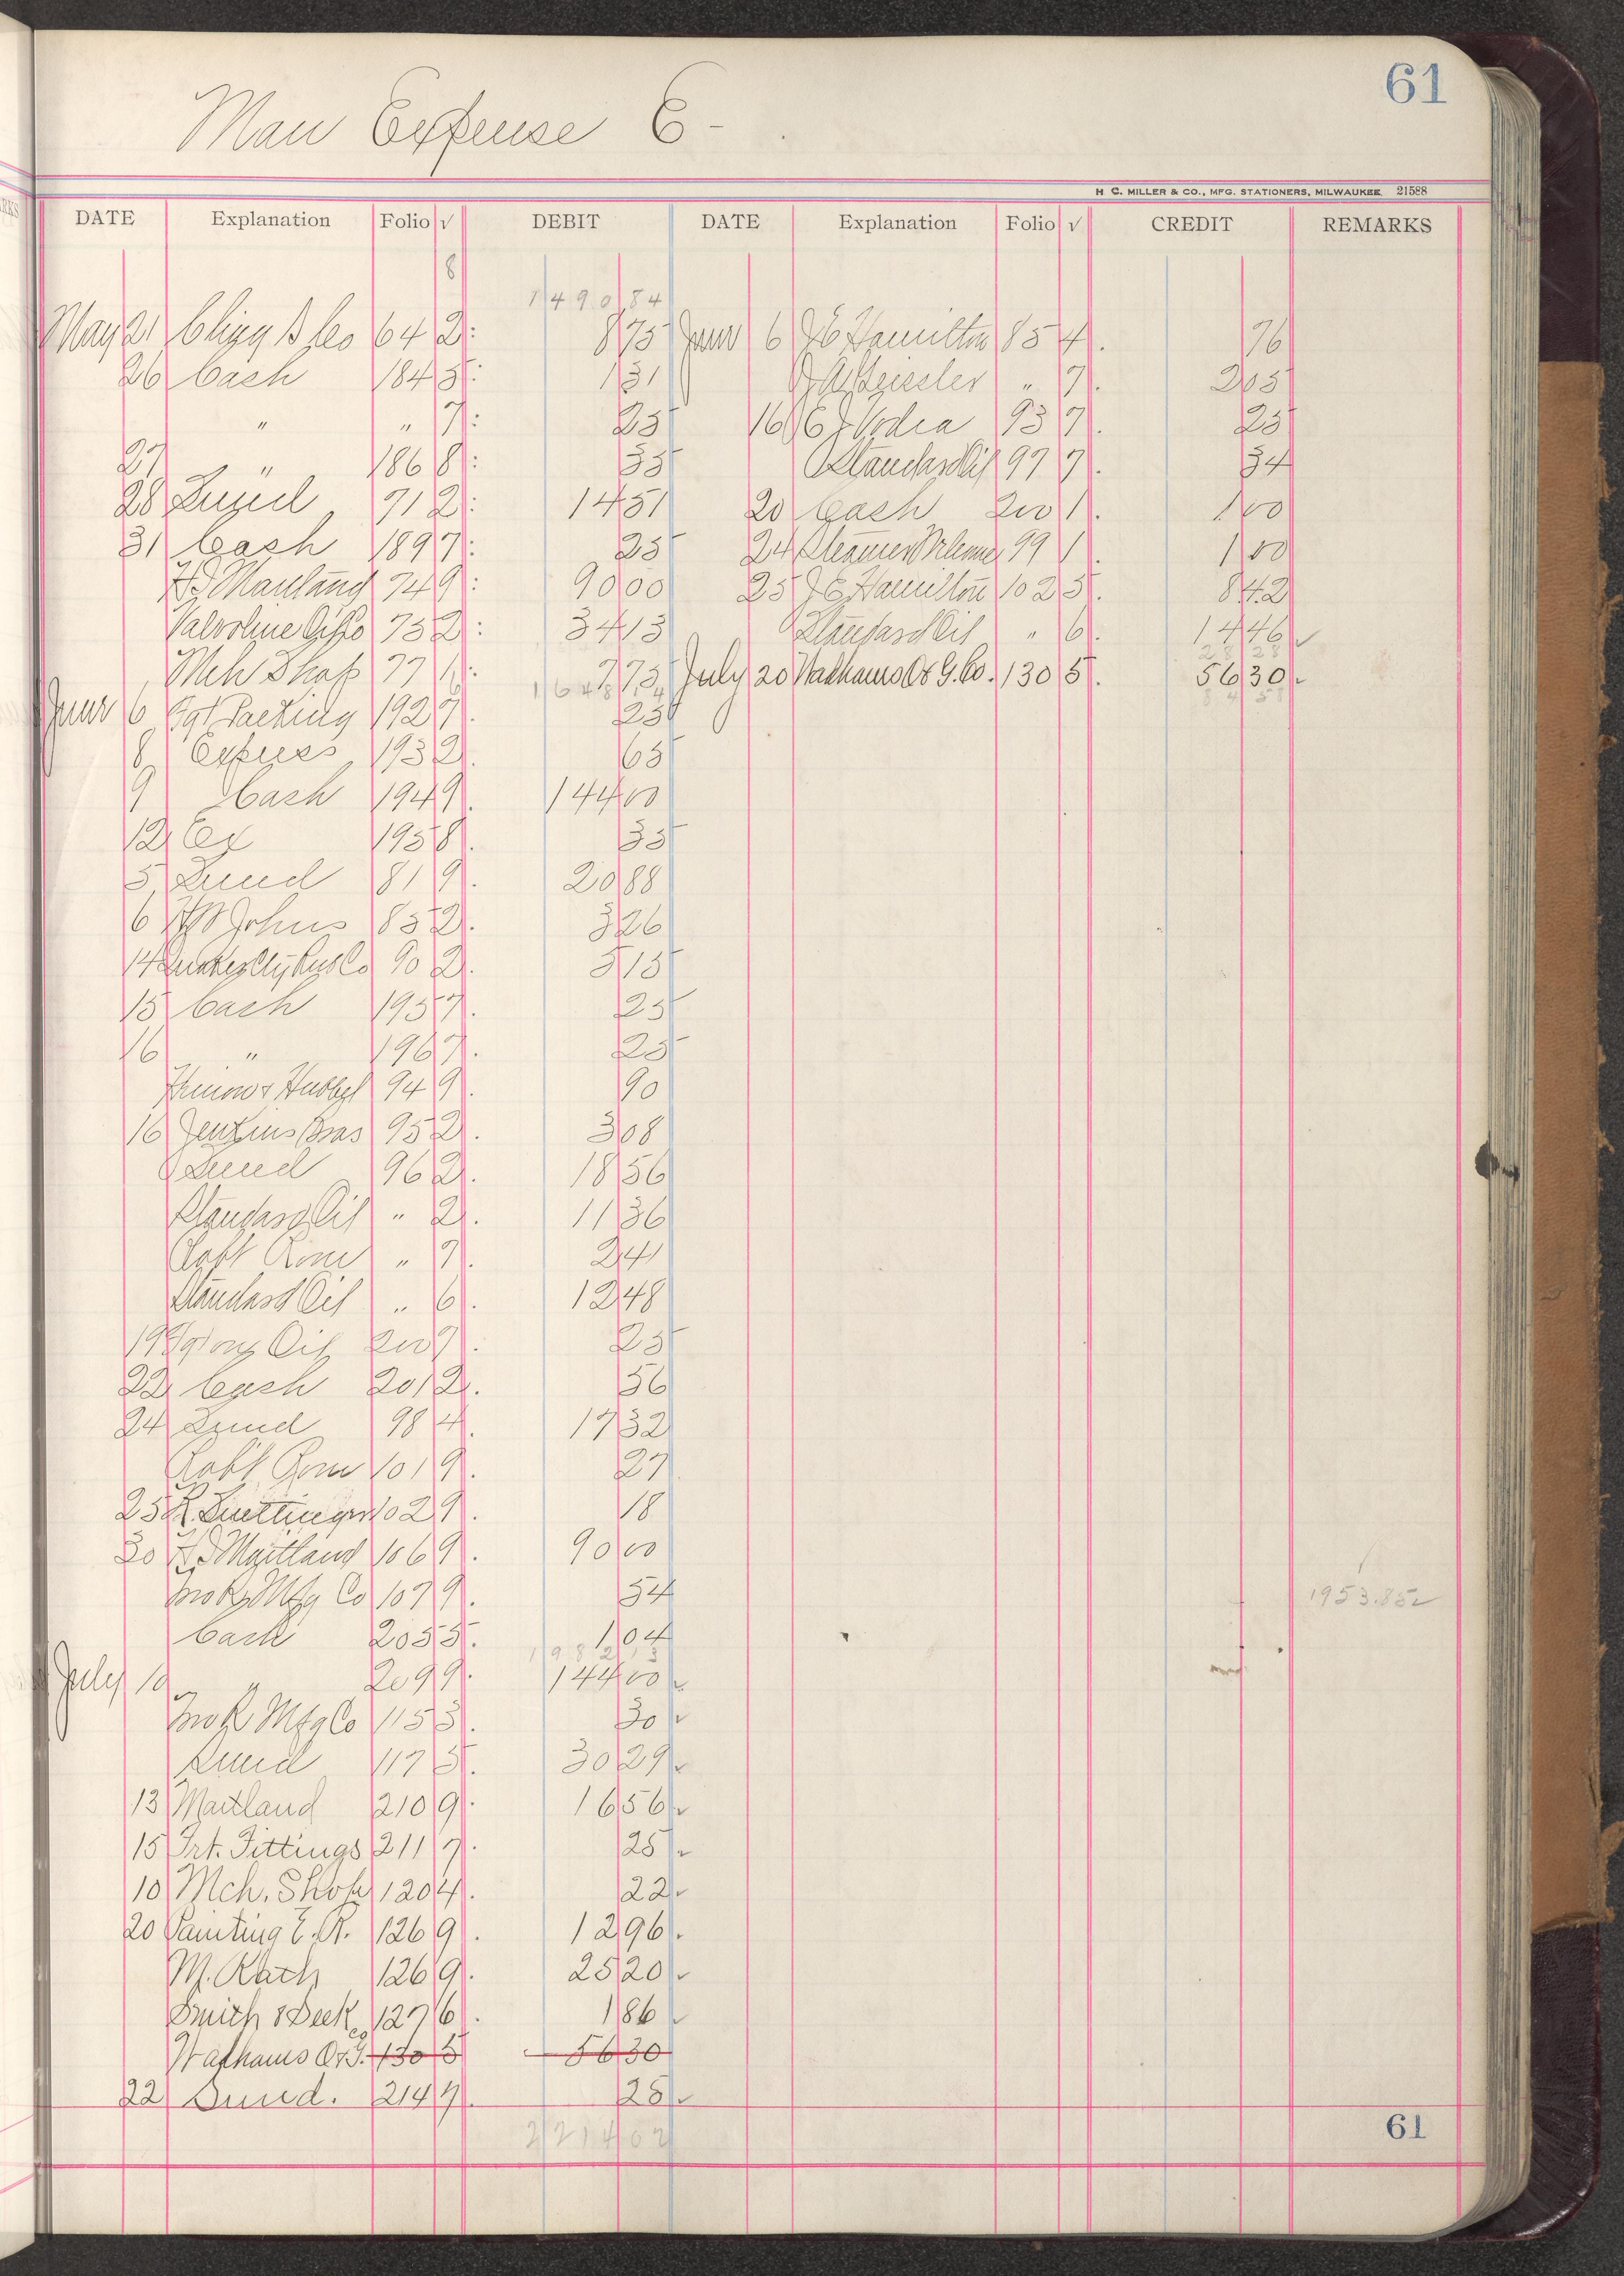 61
Man Expense 6 -
H. C. MILLER & CO., MFG. STATIONERS, MILWAUKEE 21588
DATE Explanation Folio √ DEBIT DATE Explanation Folio √ CREDIT REMARKS
8
1490 84
May 21 & Co 64 2 8 75 June 6 Hamilton 85 4 76
26 Cash 184 5 1 31 Geissler " 7 2 05
" " 7 25 16 Vodra 93 7 25
27 " 186 8 35 Standard Oil 97 7 34
28 712 14 51 20 Cash 200 1 1 00
31 Cash 189 7 25 24 Steamer 99 1 1 00
Maitland 74 9 90 00 25 Hamilton 102 5 8 42
Valvoline Oil Co 75 2 34 13 Standard Oil " 6 14 46
28 28
Mch Shop 77 1 7 73 July 20 Wadhams O & G. Co. 130 5 56 30
1648 84 58
June 6 Packing 192 7 25
8 Express 193 2 65
9 Cash 194 9 144 00
12 Ex 195 8 35
5 Lund 81 9 20 88
6 Johns 85 2 3 26
14 90 2 5 15
15 Cash 195 7 25
16 " 196 7 25
94 9 90
16 Jenkins Bros 95 2 3 08
Lund 96 2 18 56
Standard Oil " 2 11 36
Robt Rom " 7 2 41
Standard Oil " 6 12 48
19 Oil 200 7 25
22 Cash 201 2 56
24 Lund 98 4 17 32
Robt Rom 101 9 27
25 R. Luettinger 102 9 18
30 Maitland 106 9 90 00
Mfg Co 107 9 54
1953.852
Cash 205 5 1 04
1982 13
July 10 " 209 9 144 00
Mfg Co 115 5 30
Lund 117 5 30 29
13 Maitland 210 9 16 56
15 Frt. Fittings 211 7 25
10 Mch. Shop 120 4 22
20 Painting E. R. 126 9 12 96
M. Rath 126 9 25 20
Smith & Beck Co 127 6 1 86
Wadhams O & G. 130 5 56 30
22 Lund. 214 7 25
61
2214 02